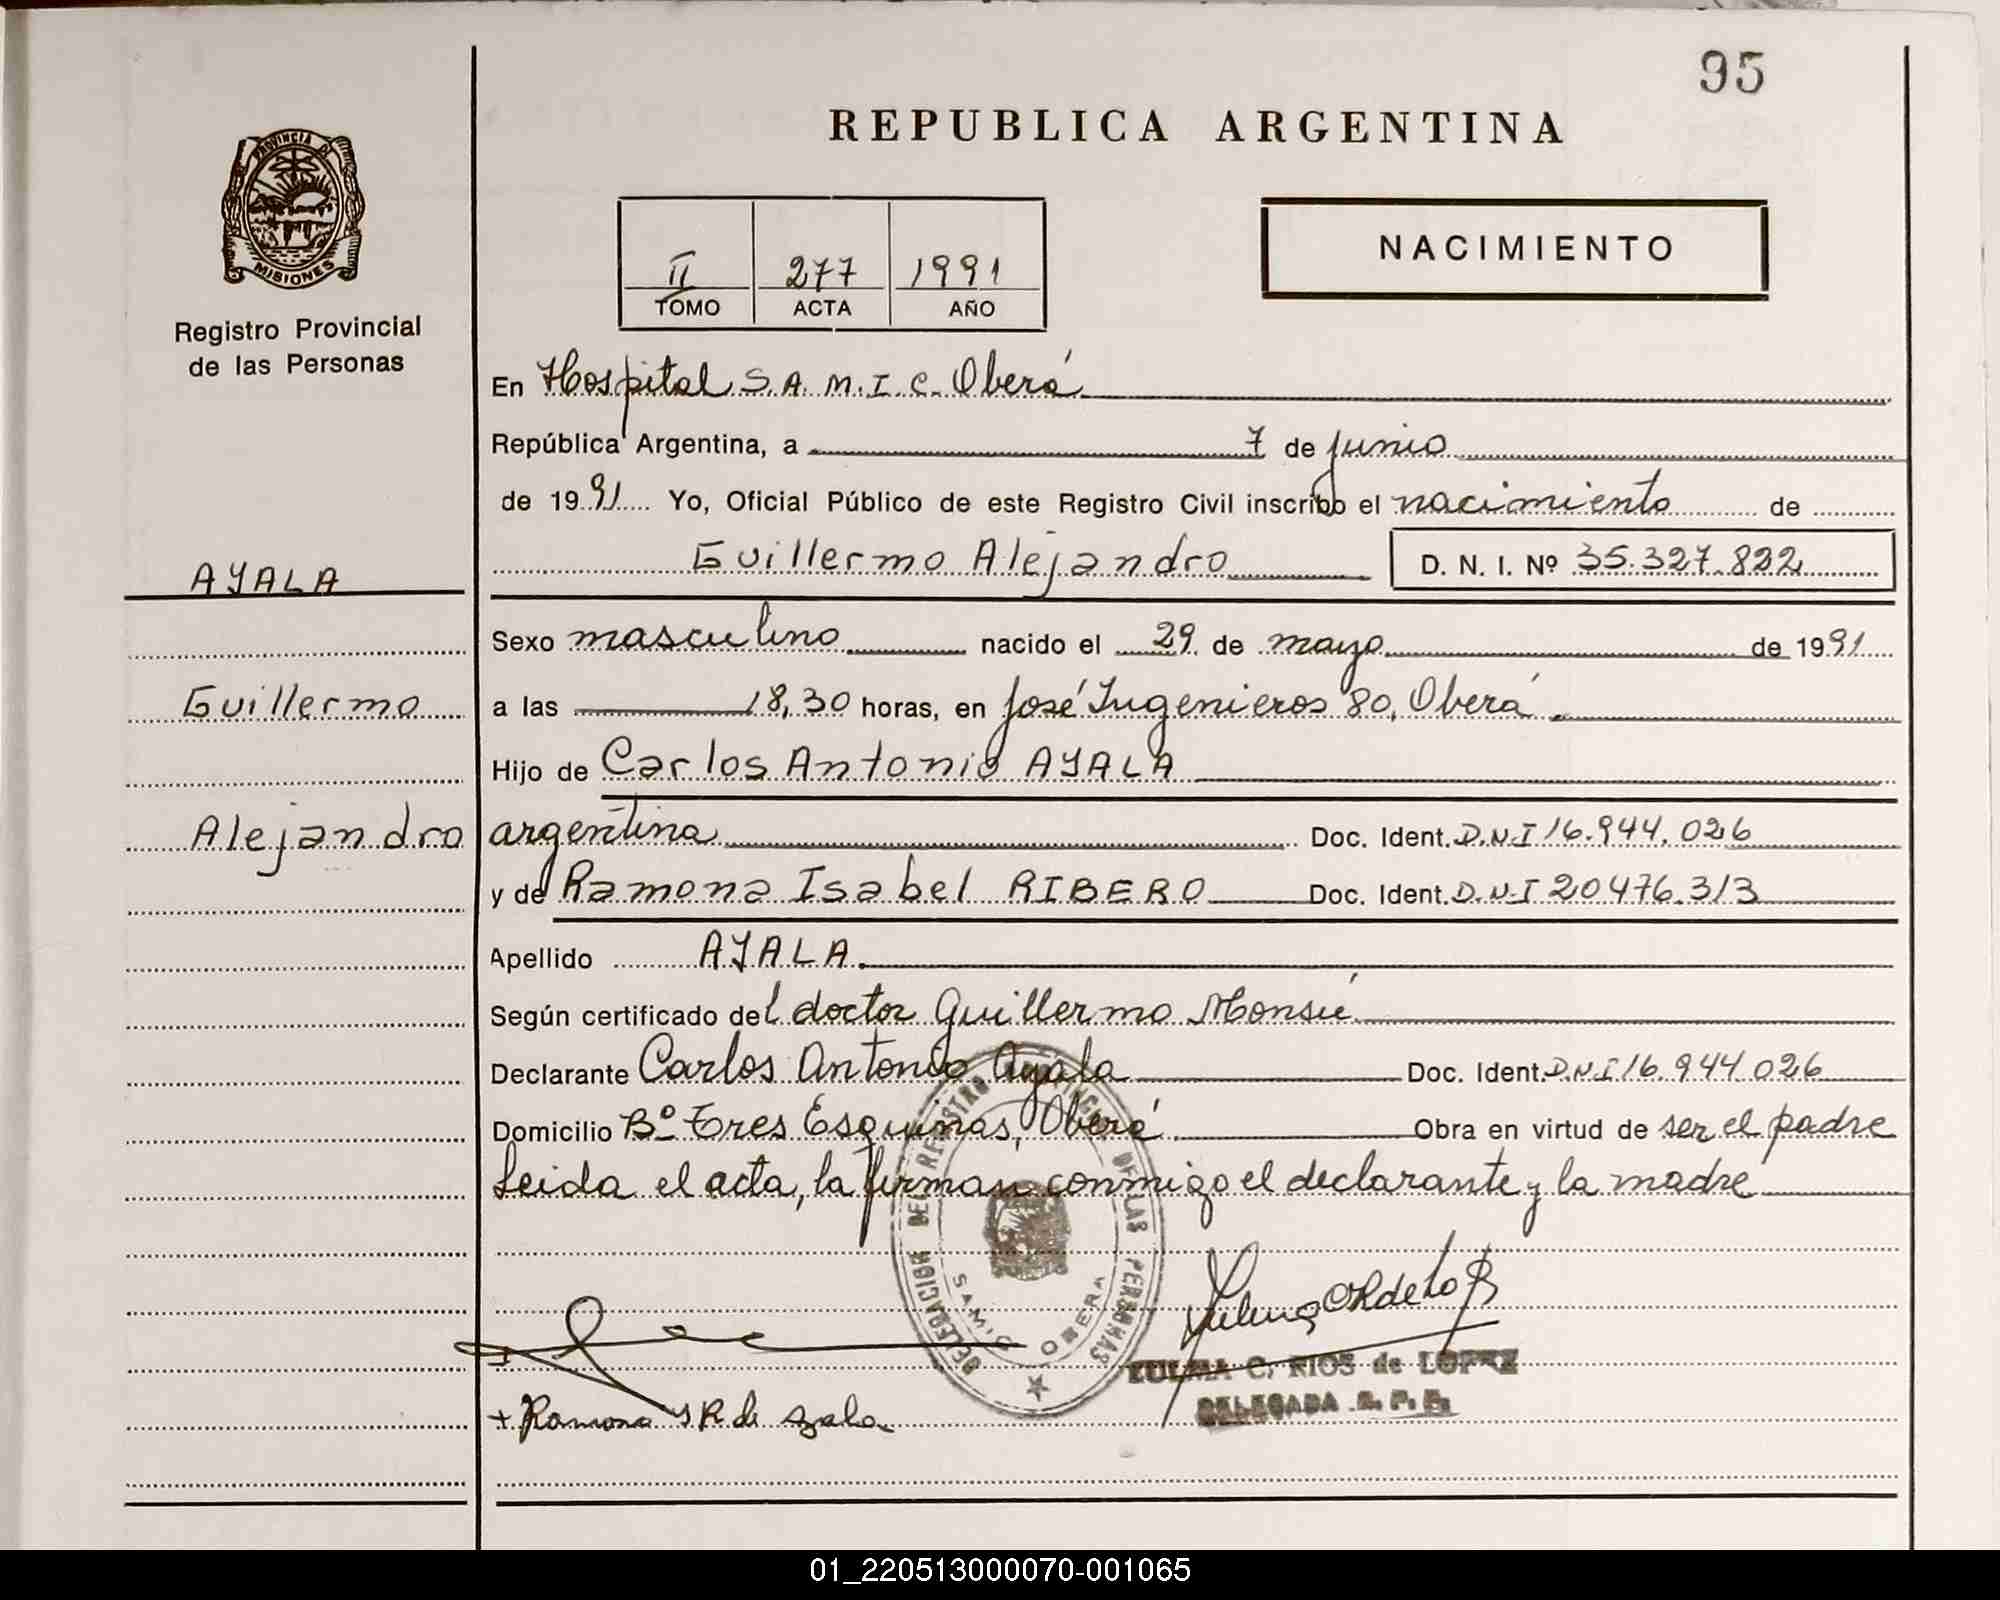 95
REPUBLICA ARGENTINA
PROVINCIA DE
MISIONES
Registro Provincial
de las Personas
NACIMIENTO
II 277 1991
TOMO ACTA AÑO
En Hospital S.A.M.I.C. Oberá
República Argentina, a 7 de junio
de 1991 Yo, Oficial Público de este Registro Civil inscribo el nacimiento de
AYALA
Guillermo Alejandro D. N. I. Nº 35.327.822
Sexo masculino nacido el 29 de mayo de 1991
Guillermo
a las 18,30 horas, en José Ingenieros 80, Oberá
Hijo de Carlos Antonio AYALA
Alejandro
argentina Doc. Ident. D.N.I 16.944.026
y de Ramona Isabel RIBERO Doc. Ident. D.N.I 20476.313
Apellido AYALA
Según certificado del doctor Guillermo Monsú
Declarante Carlos Antonio Ayala Doc. Ident. D.N.I 16.944 026
Domicilio Bº Tres Esquinas, Oberá Obra en virtud de ser el padre
Leida el acta, la firman conmigo el declarante y la madre
DELEGACION DEL REGISTRO PROVINCIAL DE LAS PERSONAS
SAMIC OBERA
ZULMA C. RIOS de LOPEZ
DELEGADA R. P. P.
+ Ramona I R de Ayala
01_220513000070-001065